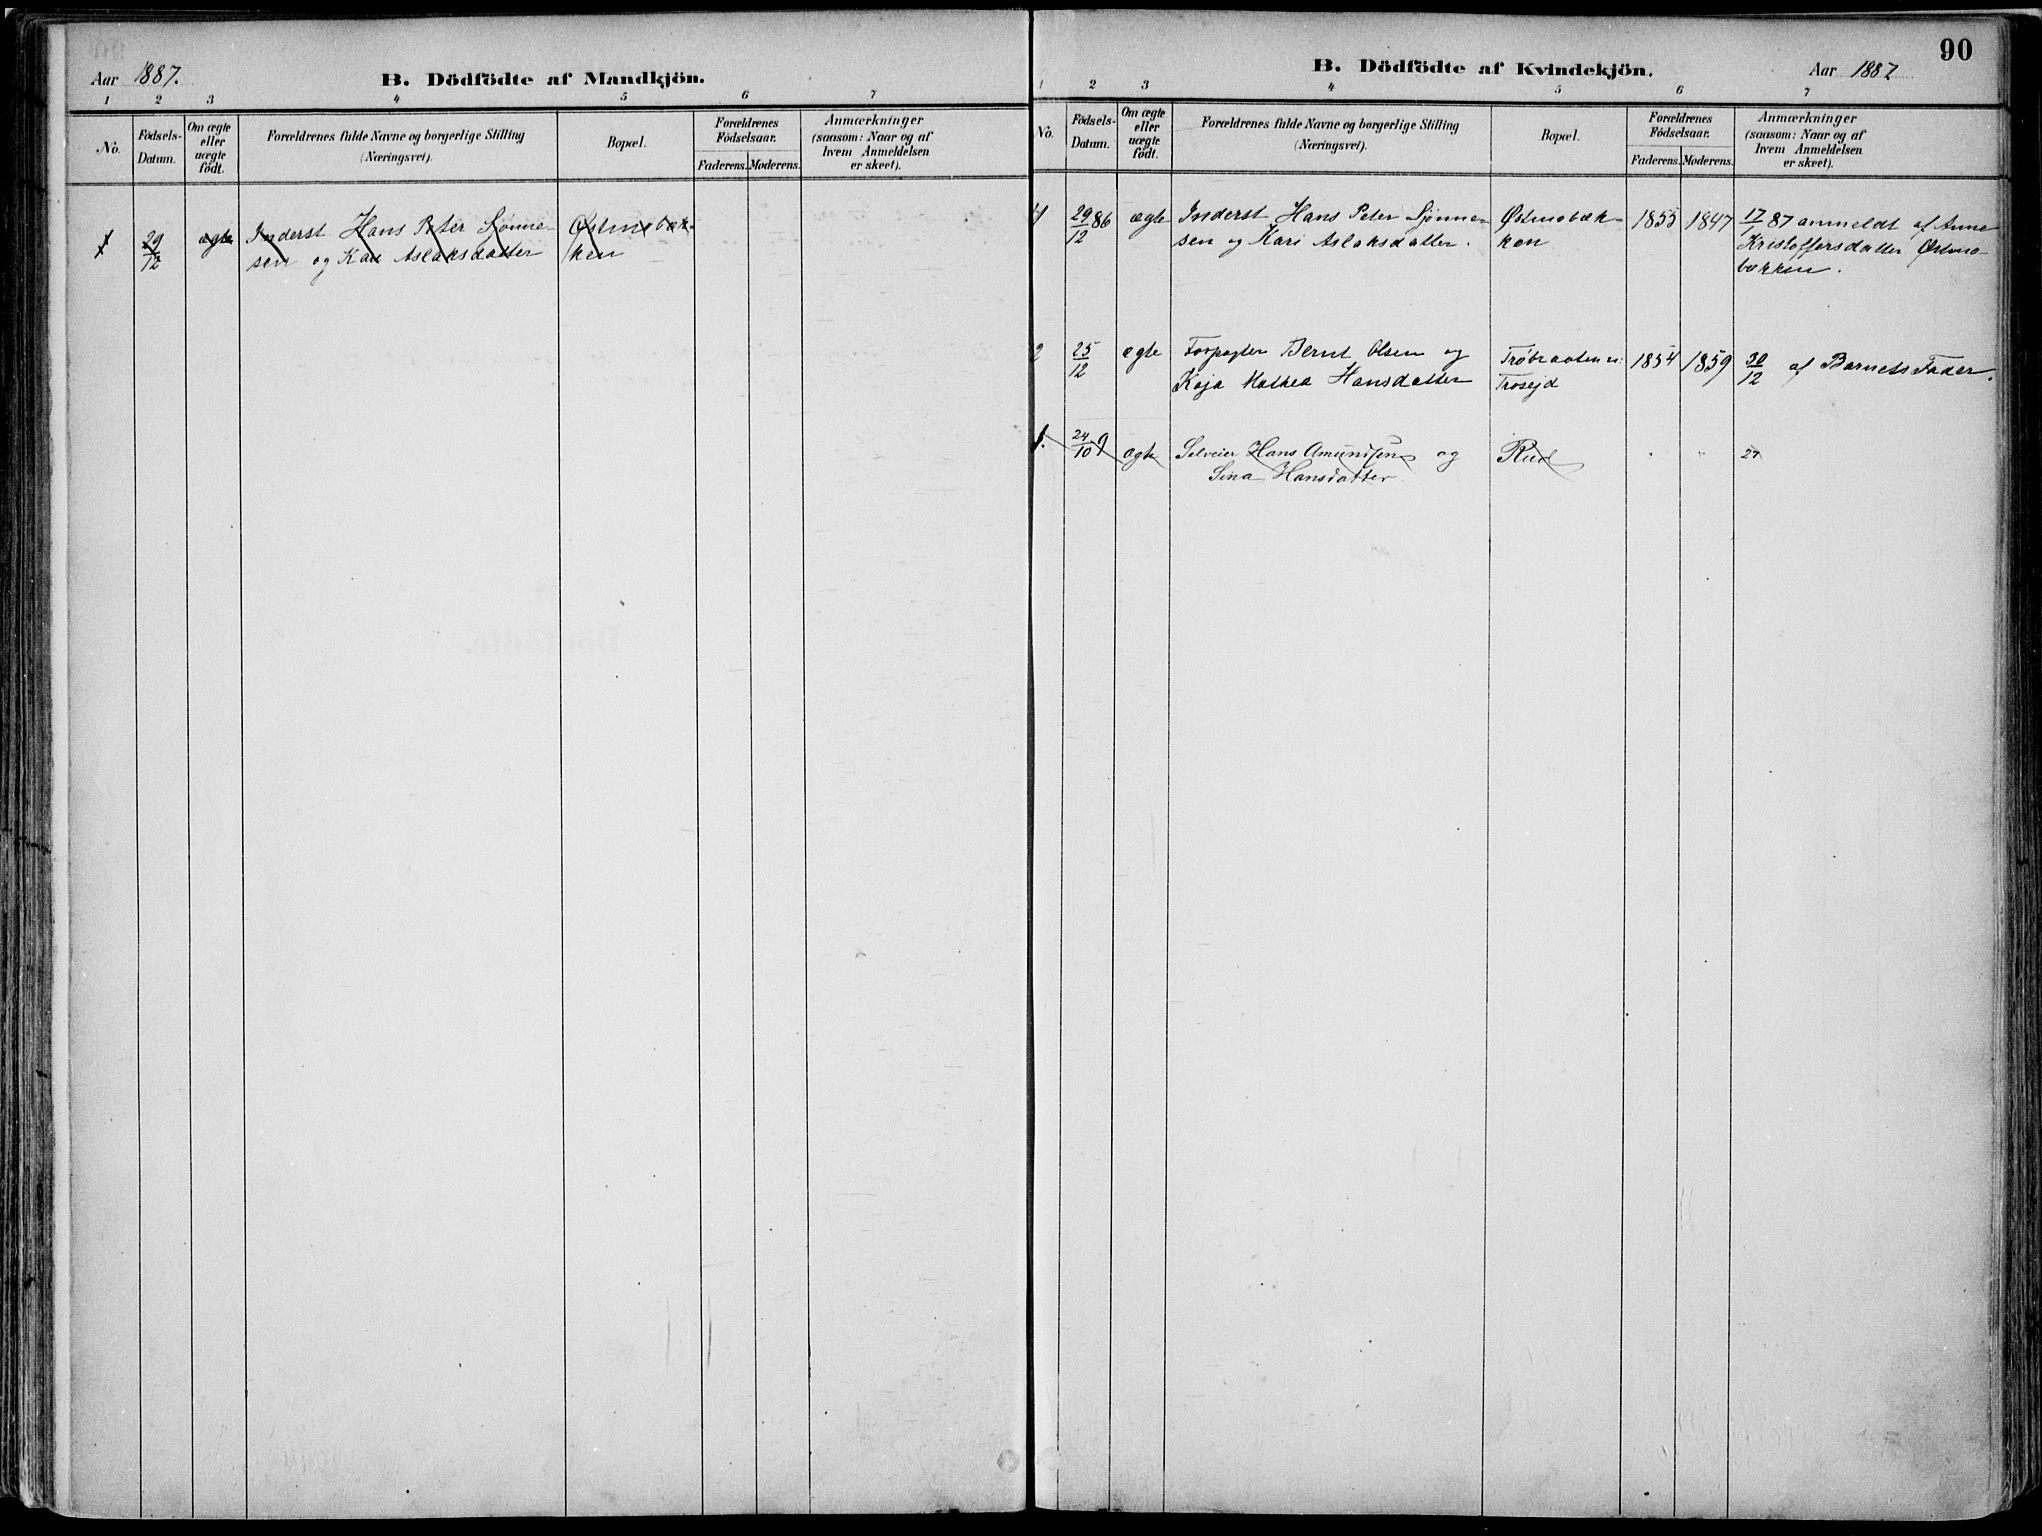 Aar 1887. B. Dödfödte af Mandkjön.
1 2 3 4 5 6 7
No. Födsels-Datum. Om ægte eller uægte födt. Forældrenes fulde Navne og borgerlige Stilling (Næringsvei). Bopæl. Forældrenes Födselsaar. Faderens. Moderens. Anmærkninger (saasom: Naar og af hvem Anmeldelsen er skeet).
1 29/12 ægte Inderst Hans Peter Sjønne- Østmobæk-
sen og Kari Aslaksdatter ken
90
B. Dödfödte af Kvindekjön. Aar 1887
1 2 3 4 5 6 7
No. Födsels-Datum. Om ægte eller uægte födt. Forældrenes fulde Navne og borgerlige Stilling (Næringsvei). Bopæl. Forældrenes Födselsaar. Faderens. Moderens. Anmærkninger (saasom: Naar og af hvem Anmeldelsen er skeet).
1 29/12 86 ægte Inderst Hans Peter Sjønne- Østmobæk- 1855 1847 17/1 87 anmeldt af Anne
sen og Kari Aslaksdatter. ken Kristoffersdatter Østmo-
bækken.
2 25/12 ægte Forpagter Bernt Olsen og 1854 1859 30/12 af Barnets Fader.
Kaja Mathea Hansdatter
1. 24/10 ægte Selveier Hans Amundsen og Rud " " 27
Sina Hansdatter